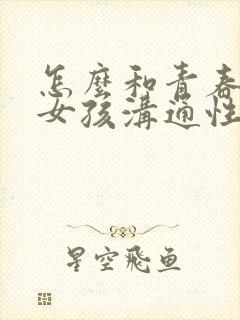 怎麼和青春
女孩溝通性
星空飛魚